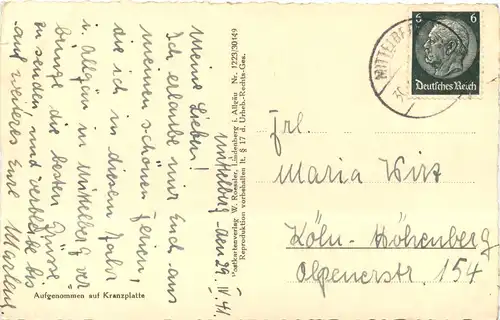 Mittelberg, den 29. IV. 41.
Meine Lieben!
Ich erlaube mir Euch aus
meinen schönen Ferien,
die ich in diesem Jahr
i. Allgäu in Mittelberg ver
bringe die besten Grüsse
zu senden, und verbleibe bis
auf weiteres Eure
Aufgenommen auf Kranzplatte
Postkartenverlag W. Roessler, Lindenberg i. Allgäu Nr. 1223/30149
Reproduktion vorbehalten lt. § 17 d. Urheb.-Rechts-Ges.
6 6
Deutsches Reich
Frl.
Maria Wirt
Köln-Höhenberg
Olpenerstr. 154